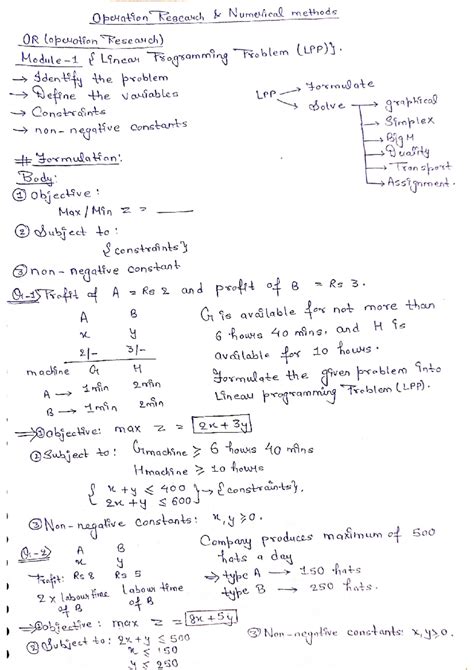 Operation Reacarch & Numerical methods
OR (operation Research)
Module-1 { Linear Programming Problem (LPP)}.
→ Identify the problem
→ Define the variables
→ Constraints
→ non-negative constants
LPP → Formulate
→ Solve → graphical
→ Simplex
→ Big M
→ Duality
→ Transport
→ Assignment.
# Formulation:
Body:
① Objective:
Max/Min z = ____
② Subject to:
{constraints}
③ non-negative constant
Q-1) Profit of A = Rs 2 and profit of B = Rs 3.
A B
x y
2/- 3/-
machine G H
A → 1min 2min
B → 1min 2min
G is available for not more than
6 hours 40 mins, and H is
available for 10 hours.
Formulate the given problem into
Linear programming Problem (LPP).
⇒ ① Objective: max z = 2x + 3y
② Subject to: G machine ≥ 6 hours 40 mins
H machine ≥ 10 hours
{ x + y ≤ 400
2x + y ≤ 600 } → {constraints}.
③ Non-negative constants: x, y ≥ 0.
Q-2) A B
x y
Profit: Rs 8 Rs 5
2 x labour time of B labour time of B
Company produces maximum of 500
hats a day
⇒ type A → 150 hats
type B → 250 hats.
⇒ ① Objective: max z = 8x + 5y
② Subject to: 2x + y ≤ 500
x ≤ 150
y ≤ 250
③ Non-negative constants: x, y ≥ 0.